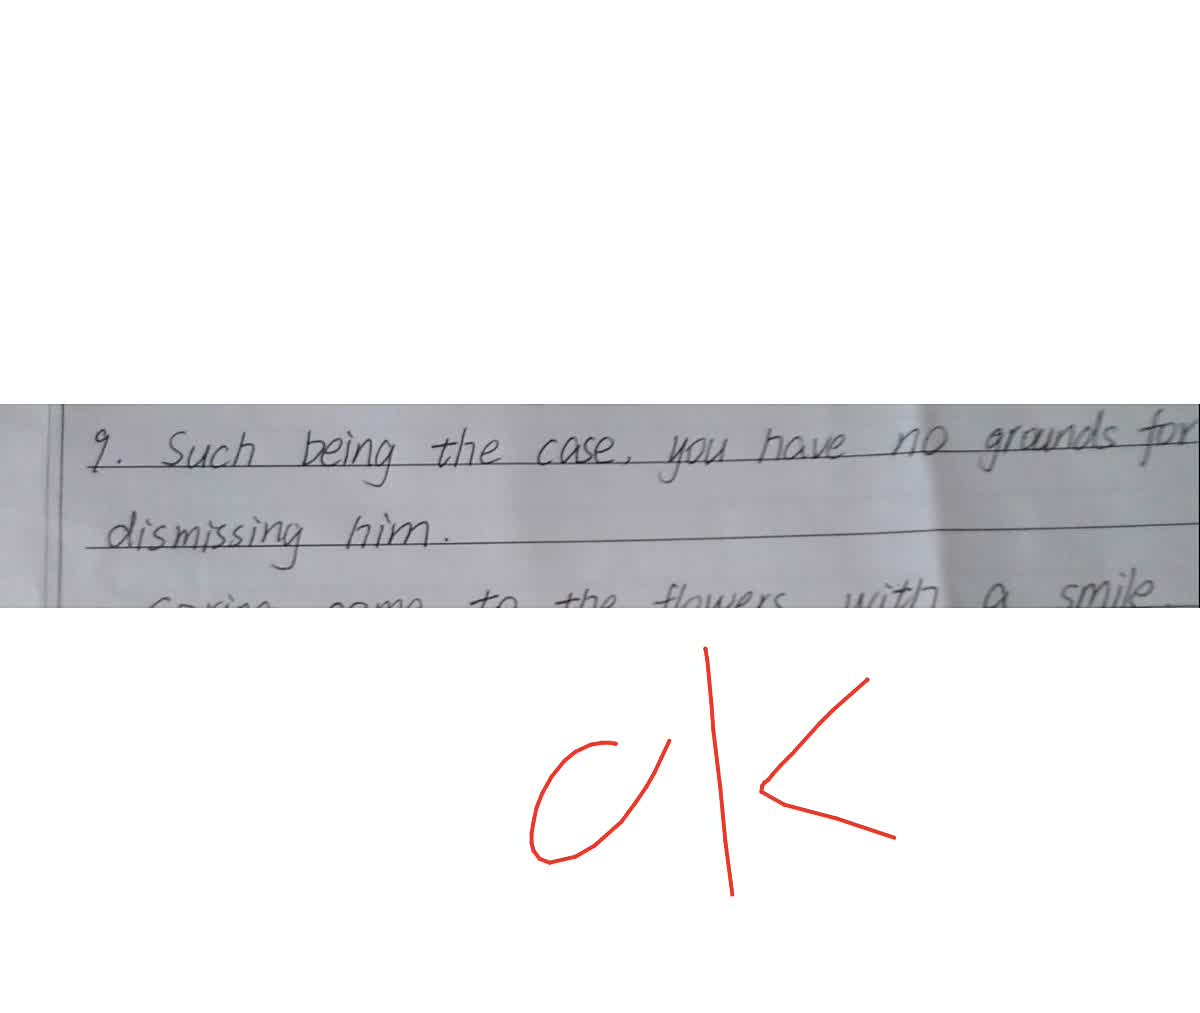 9. Such being the case, you have no grounds for
dismissing him.
to the flowers with a smile
OK